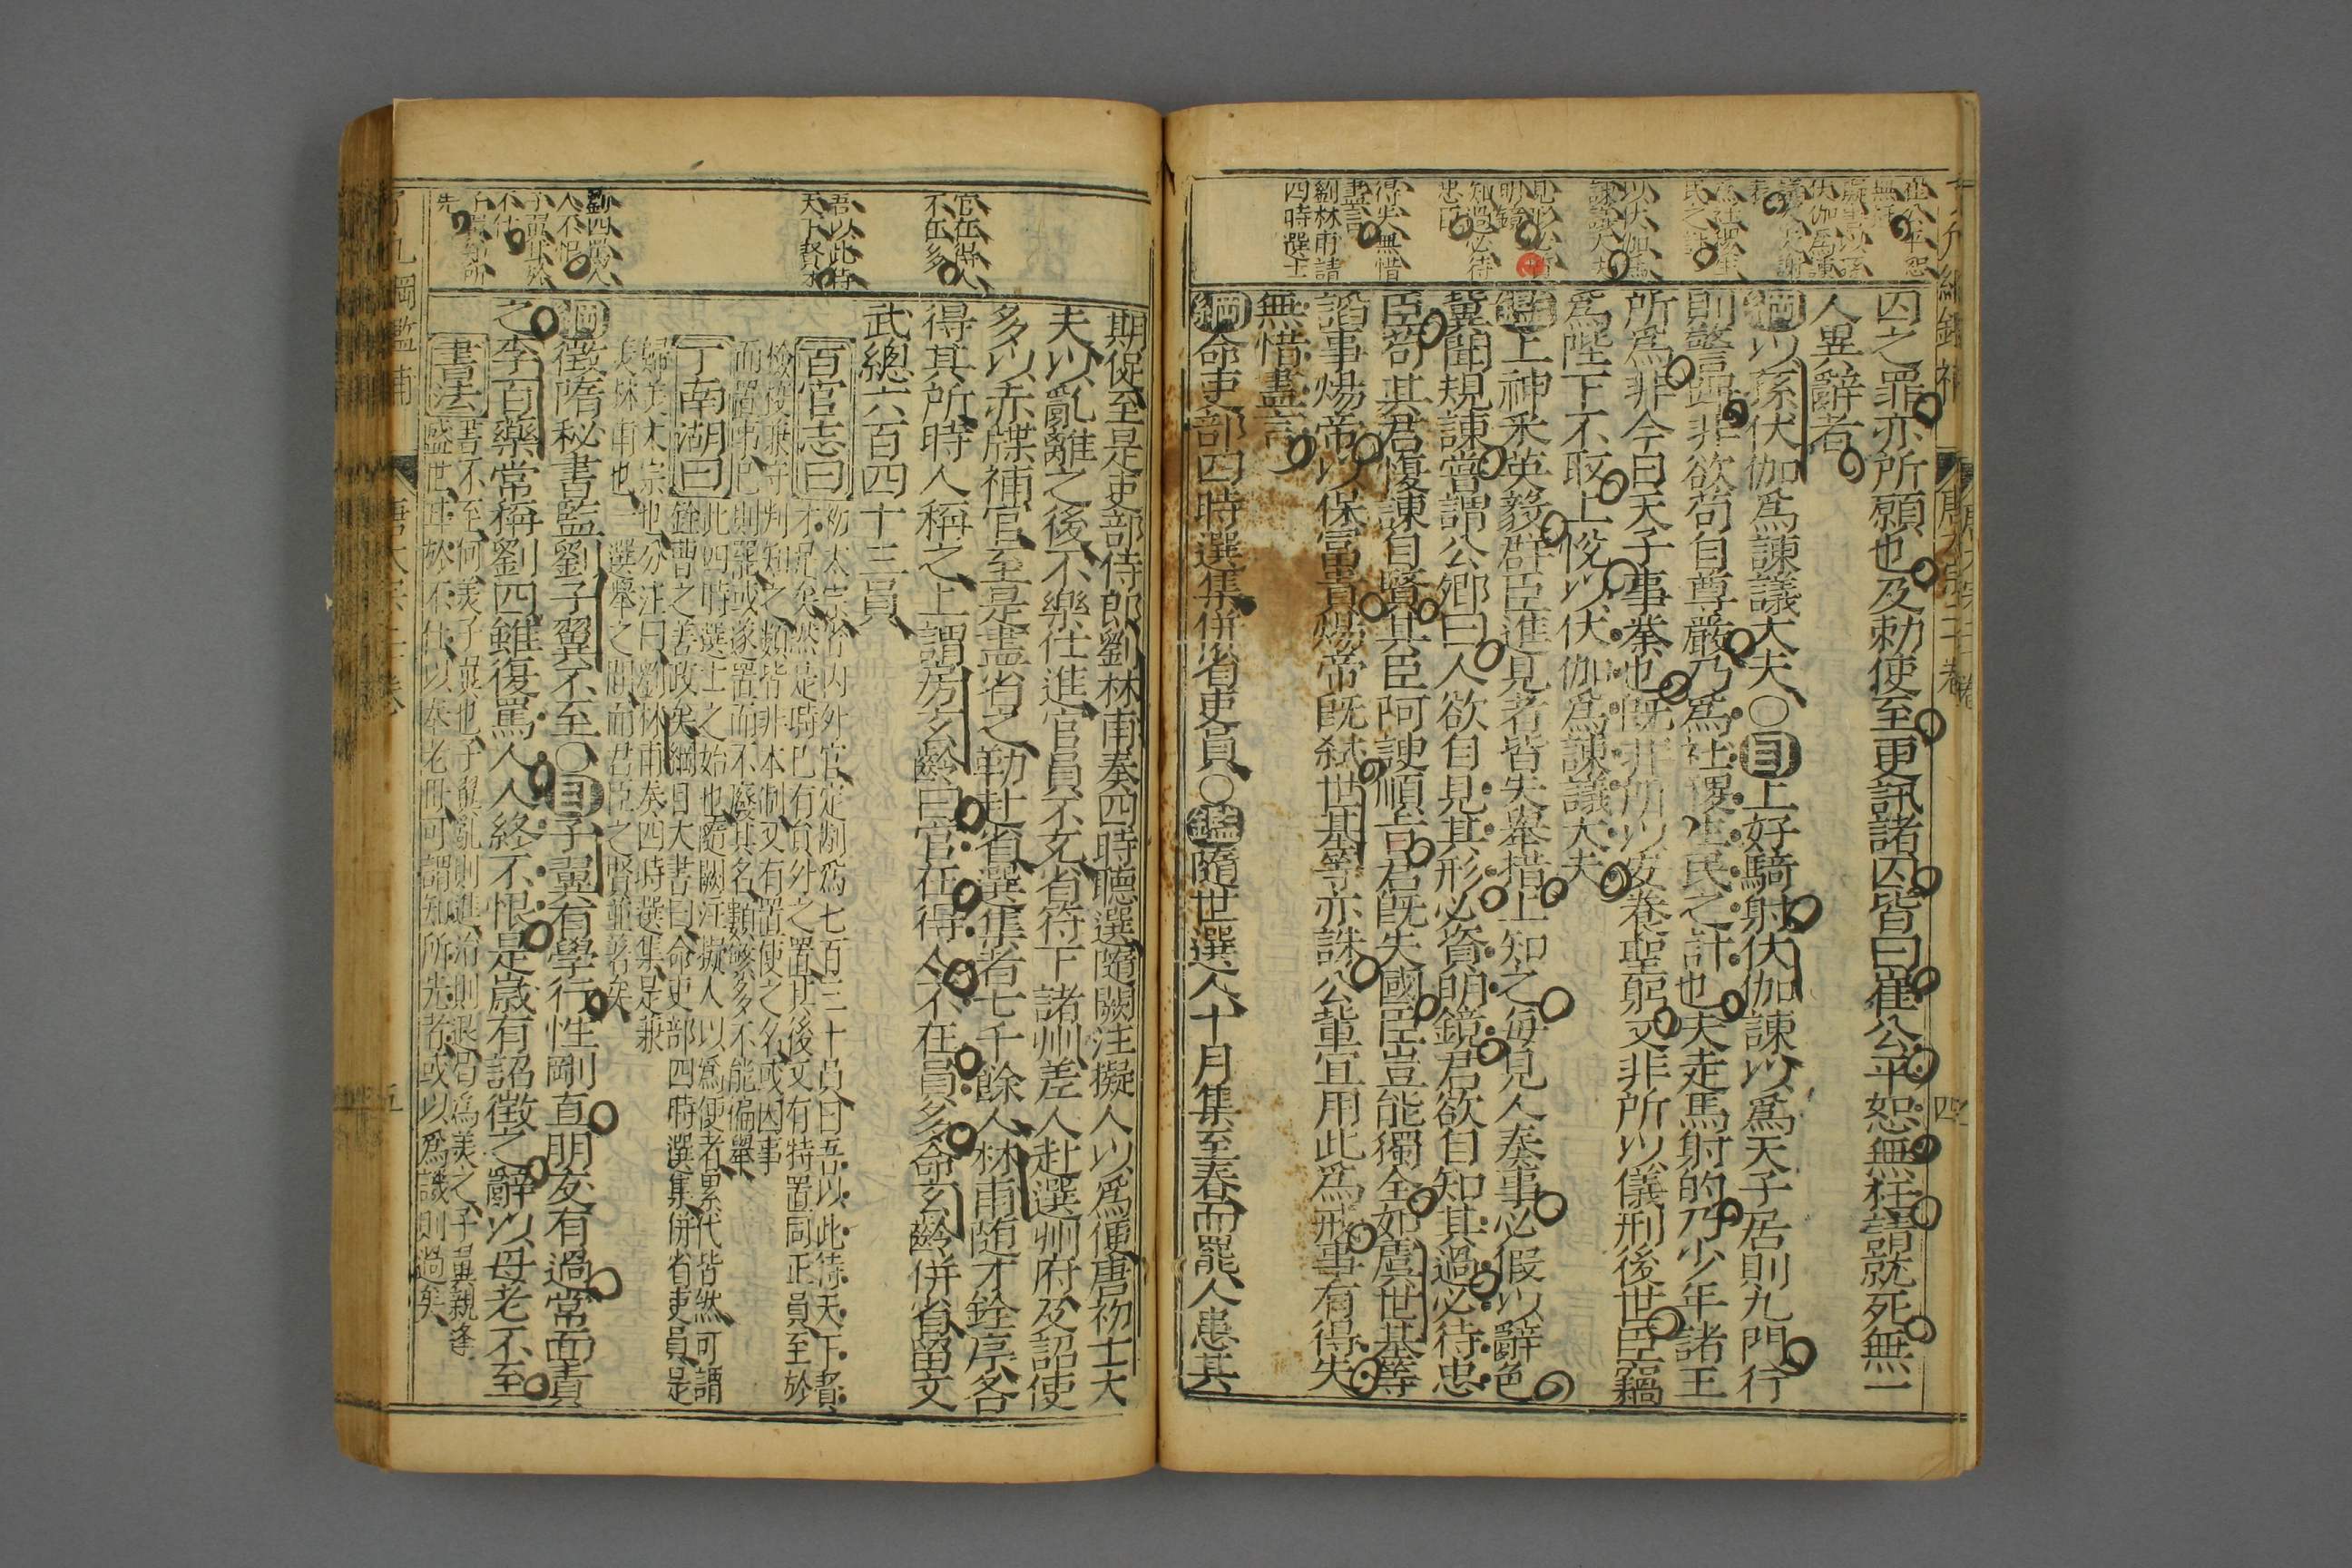 囚之罪亦所願也及勅使至更訊諸囚皆曰崔公平恕無枉請就死無一
人異辭者
綱以孫伏伽爲諫議大夫〇目上好騎射伏伽諫以爲天子居則九門行
則警蹕非欲苟自尊嚴乃爲社稷生民之計也夫走馬射的乃少年諸王
所爲非今日天子事業也既非所以安養聖躬又非所以儀刑後世臣竊
爲陛下不取上悅以伏伽爲諫議大夫
鑑上神采英毅群臣進見者皆失舉措上知之每見人奏事必假以辭色
冀聞規諫嘗謂公卿曰人欲自見其形必資明鏡君欲自知其過必待忠
臣苟其君愎諫自賢其臣阿諛順旨君既失國臣豈能獨全如虞世基等
謟事煬帝以保富貴煬帝既弒世基等亦誅公輩宜用此爲戒事有得失
無惜盡言
綱命吏部四時選集併省吏員〇鑑隋世選人十月集至春而罷人患其
崔公平恕
無枉
以伏伽爲
諫議大夫
社稷生
民之計
見形必資
明鏡
知過必待
忠臣
得失無惜
盡言
劉林甫請
四時選士
四
期促至是吏部侍郎劉林甫奏四時聽選隨闕注擬人以爲便唐初士大
夫以亂離之後不樂仕進官員不充省符下諸州差人赴選州府及詔使
多以赤牒補官至是盡省之勒赴省選集者七千餘人林甫隨才銓序各
得其所時人稱之上謂房玄齡曰官在得人不在員多命玄齡併省留文
武總六百四十三員
百官志曰初太宗省内外官定制爲七百三十員曰吾以此待天下賢
才足矣然是時已有員外之置其後又有特置同正員至於
檢校兼守判知之類皆非本制又有置使之名或因事
而置事已則罷或遂置而不廢其名類繁多不能徧舉
丁南湖曰此四時選士之始也隨闕注擬人以爲便者累代皆然可謂
銓曹之善政矣綱目大書曰命吏部四時選集併省吏員是
歸美太宗也分注曰劉林甫奏四時選集是兼
美林甫也一選舉之間而君臣之賢並著矣
綱徵隋秘書監劉子翼不至〇目子翼有學行性剛直朋友有過常面責
之李百藥常稱劉四雖復罵人人終不恨是歲有詔徵之辭以母老不至
書法書不至何美子翼也子翼亂則進治則退曷爲美之子翼親逢
盛世耳於不仕以奉老母可謂知所先者或以爲譏則過矣
官在得人
不在多
吾以此待
天下賢才
劉四罵人
人不恨
了凡綱鑑補
唐太宗
五